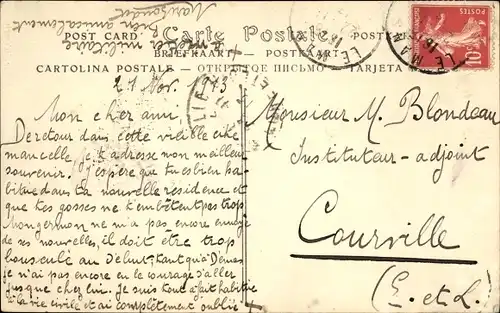 bien amicalement
POST CARD
Carte Postale
POSTKA
BRIEFKAART
POSTKART
CARTOLINA POSTALE - ОТКРЫТОЕ ПИСЬМО - TARJETA
LE MA
POSTES
10c
21 Nov. 1913
Mon cher ami,
De retour dans cette vieille cité
mancelle, je t'adresse mon meilleur
souvenir. J'espère que tu es bien ha-
bitué dans ta nouvelle résidence et
que tes gosses ne t'embêtent pas trop
Mongermon ne m'a pas encore envoyé
de ses nouvelles, il doit être trop
bousculé au début. Quant à
je n'ai pas encore eu le courage d'aller
jusque chez lui. Je suis tout à fait habitué
à la vie civile et ai complètement oublié
le métier militaire
Monsieur M. Blondeau
Instituteur-adjoint
Courville
(E. et L.)